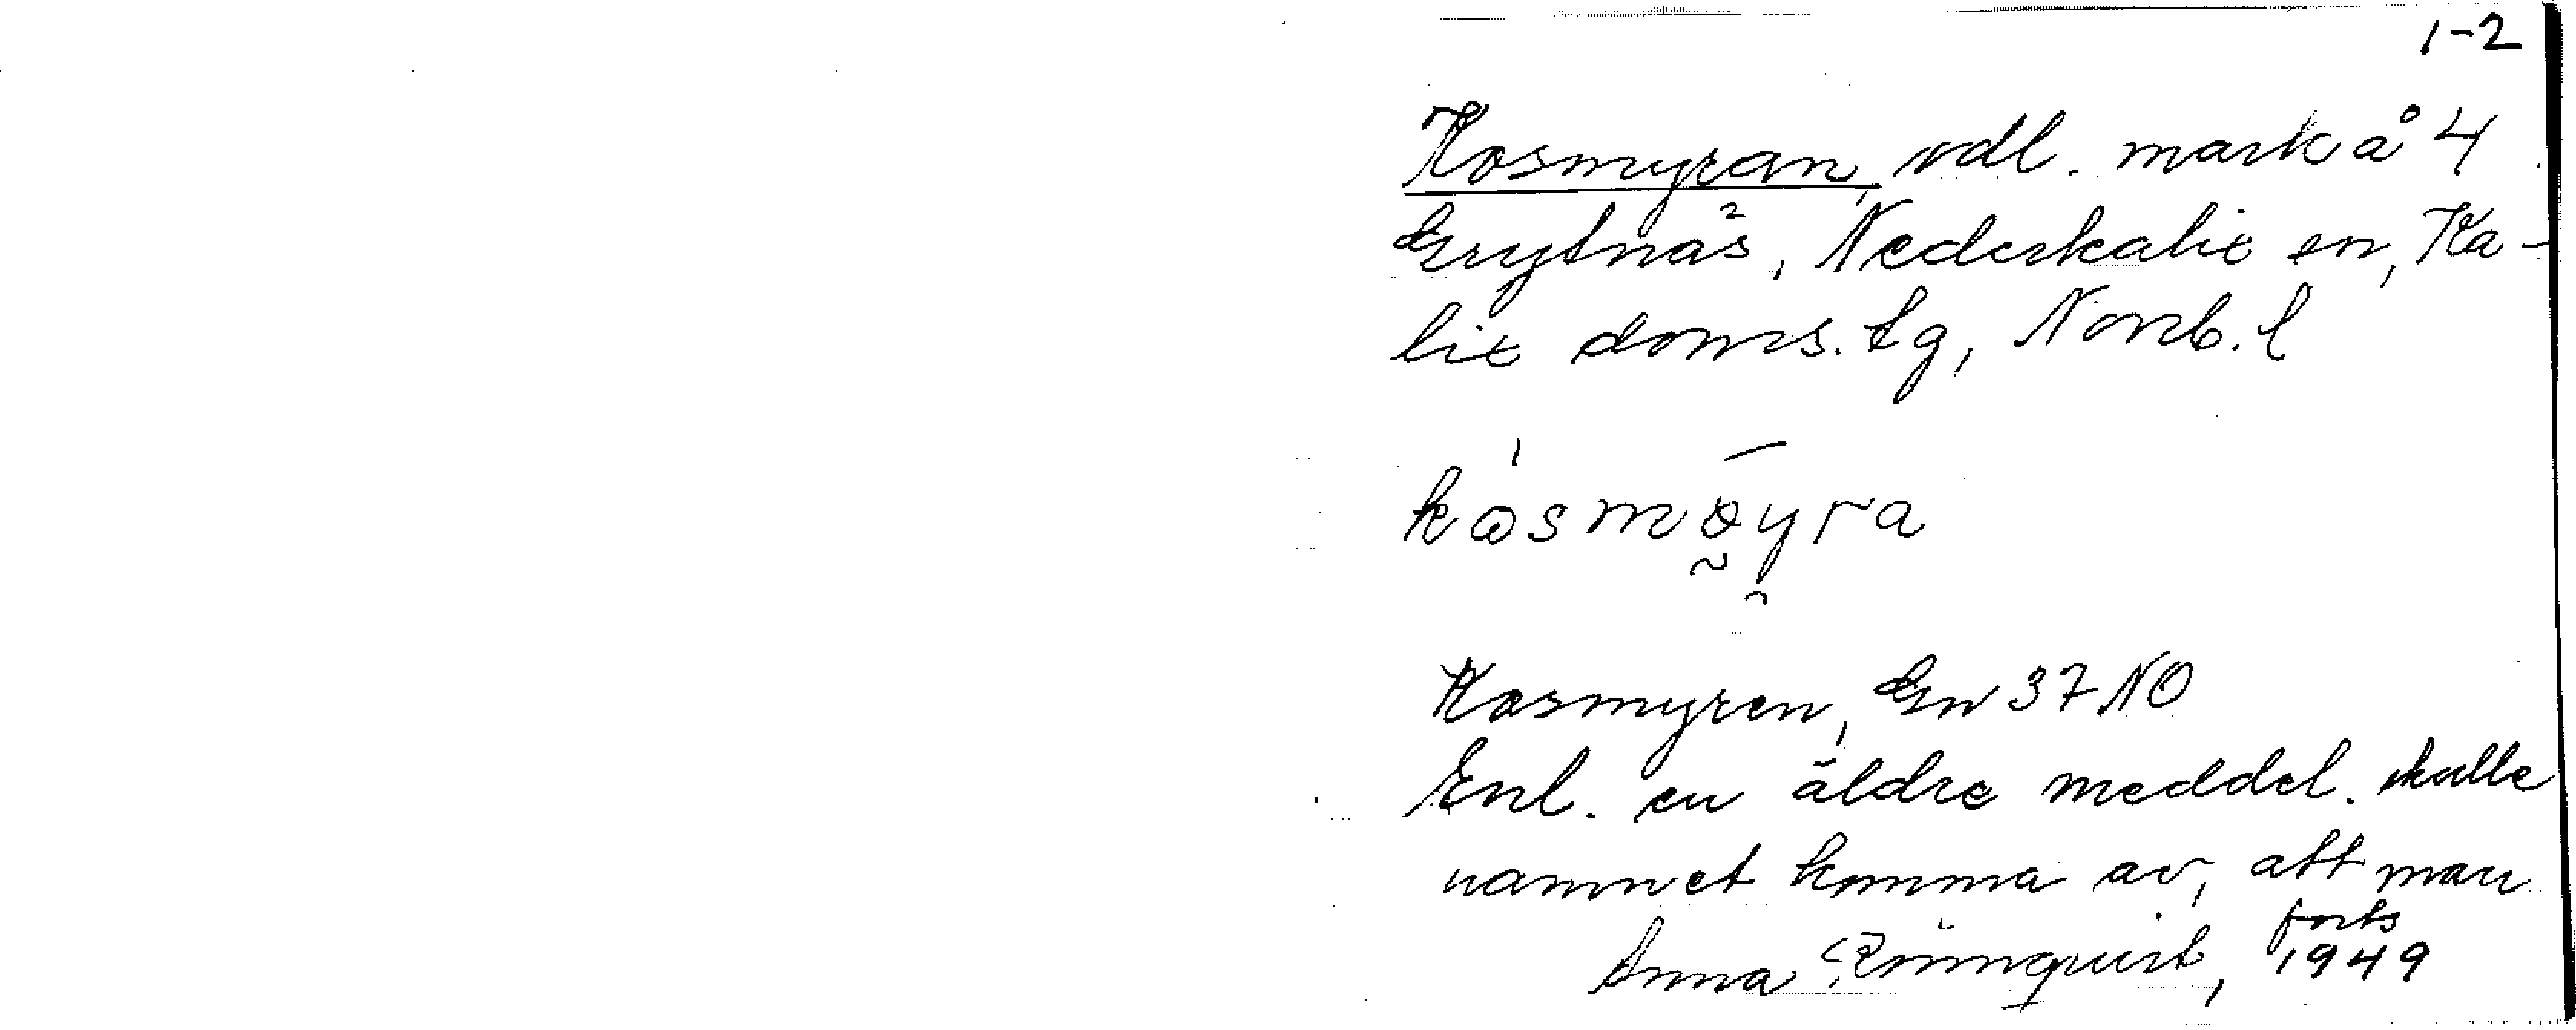 1-2
Kosmyran, odl. mark å 4
Grytnäs, Nederkalix sn, Ka-
lix doms. tg, Norrb. l
kosmøyra
Kosmyren, Gn 37 NO
Enl. en äldre meddel. skulle
namnet komma av, att man
forts
Anna Rönnqvist, 1949